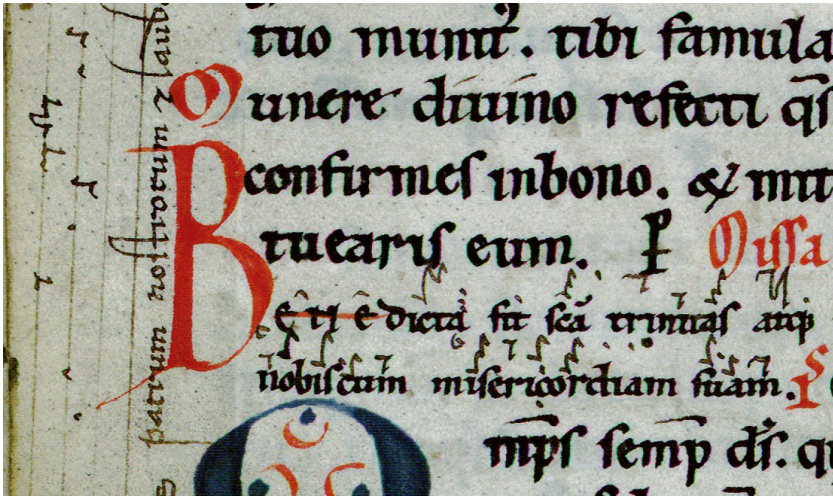 tuo munit. tibi famula
Munere diuino refecti q̄s
confirmes inbono. & mit
tuearis eum. P Missa
Benedicta sit sc̄a trinitas atq;
nobiscum misericordiam suam. Ps
mp̄s semp̄ d̄s. q
patrum nostrorum &